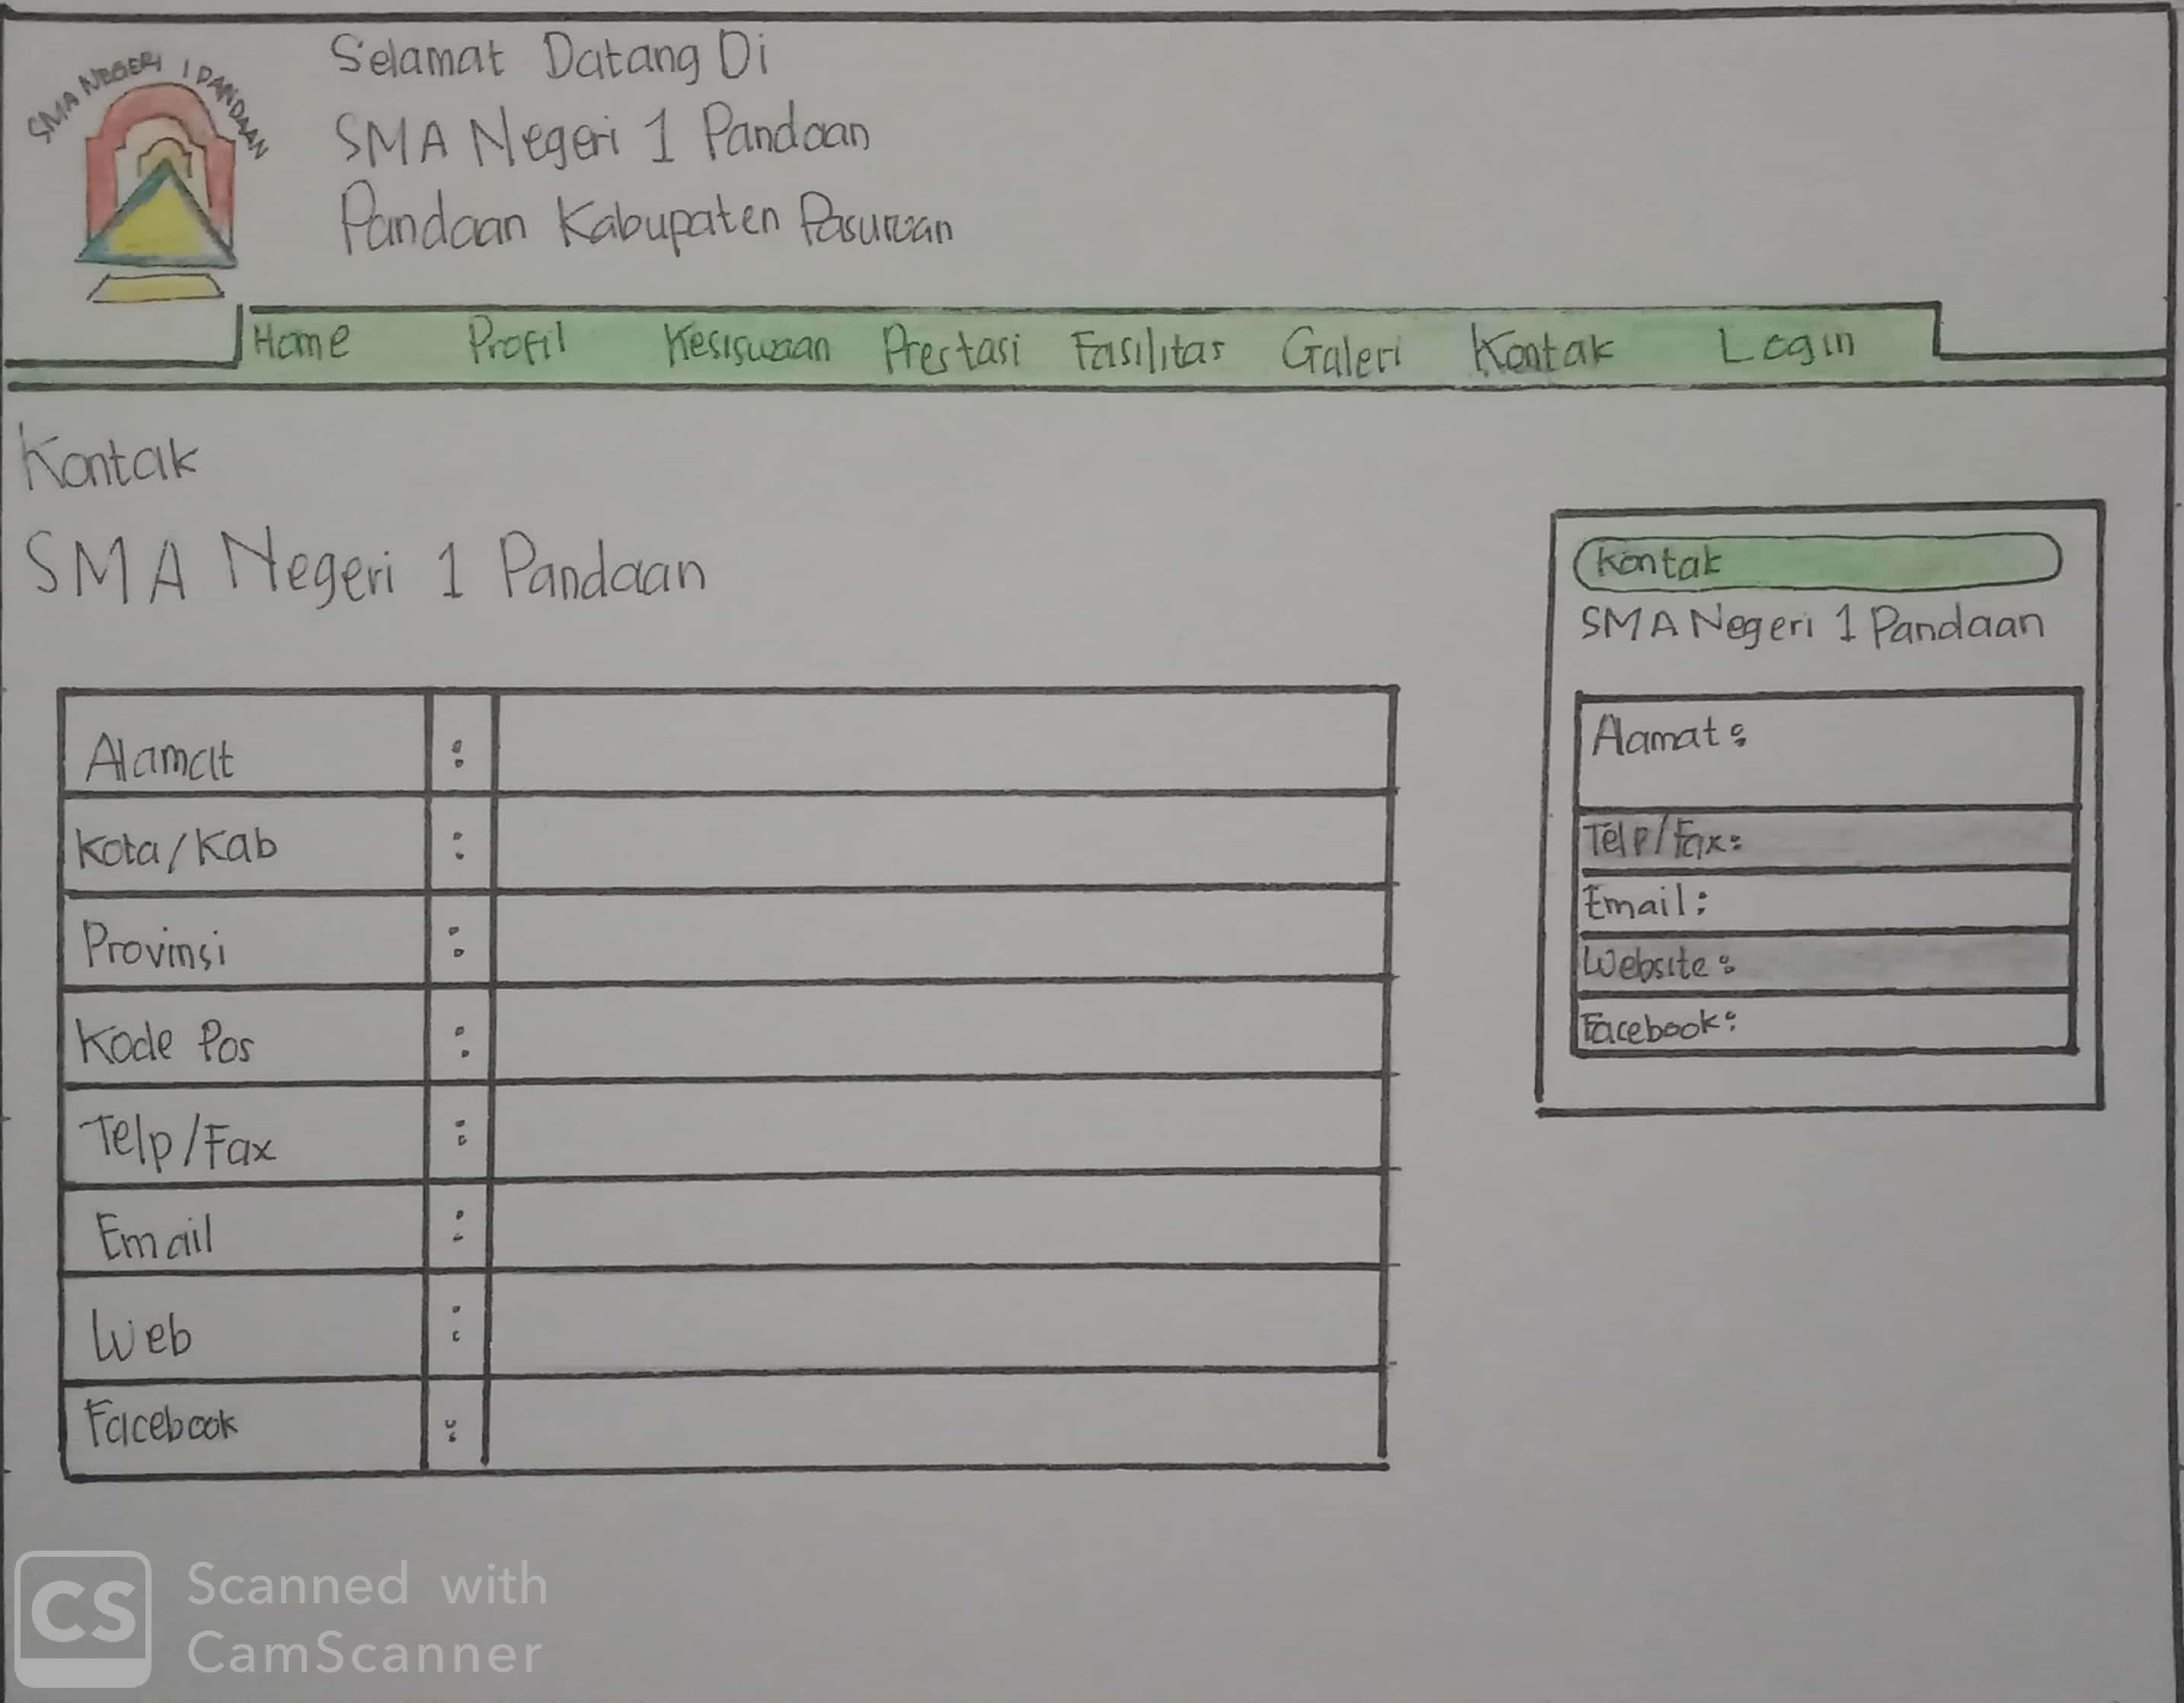 SMA NEGERI 1 PANDAAN
Selamat Datang Di
SMA Negeri 1 Pandaan
Pandaan Kabupaten Pasuruan
Home Profil Kesiswaan Prestasi Fasilitas Galeri Kontak Login
Kontak
SMA Negeri 1 Pandaan
Alamat :
Kota/Kab :
Provinsi :
Kode Pos :
Telp/Fax :
Email :
Web :
Facebook :
Kontak
SMA Negeri 1 Pandaan
Alamat :
Telp/Fax :
Email :
Website :
Facebook :
CS
Scanned with
CamScanner